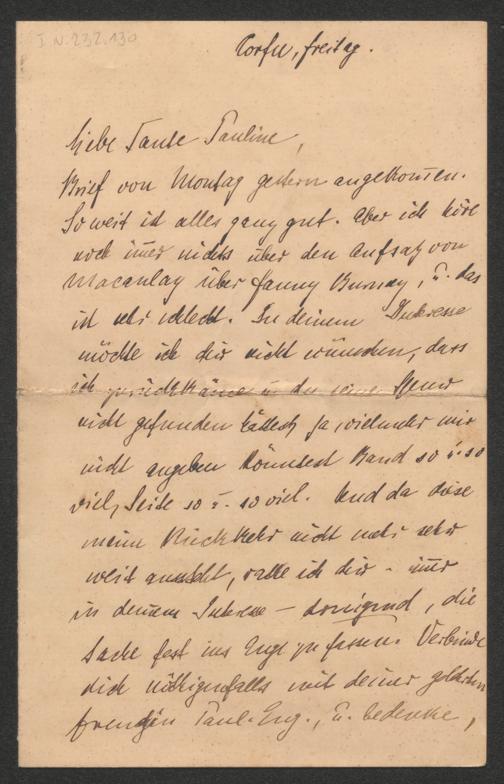 I.N. 232.130
Corfu, freitag.
Liebe Tante Pauline,
Brief von Montag gestern angekom̅en.
So weit ist alles ganz gut. Aber ich höre
noch im̅er nichts über den Aufsaz von
Macaulay über Fanny Burney, u. das
ist sehr schlecht. In deinem Interesse
möchte ich dir nicht wünschen, dass
ich zurückkäme u. du eine
nicht gefunden hättest, ja vielmehr mir
nicht angeben könntest Band so u. so
viel, Seite so u. so viel. Und da diese
meine Rückkehr nicht mehr sehr
weit aussteht, rathe ich dir – im̅er
in deinem Interesse – dringend, die
Sache fest ins Auge zu fassen. Verbinde
dich nöthigenfalls mit deiner gelehrten
Freundin Paul. Eng., u. bedenke,